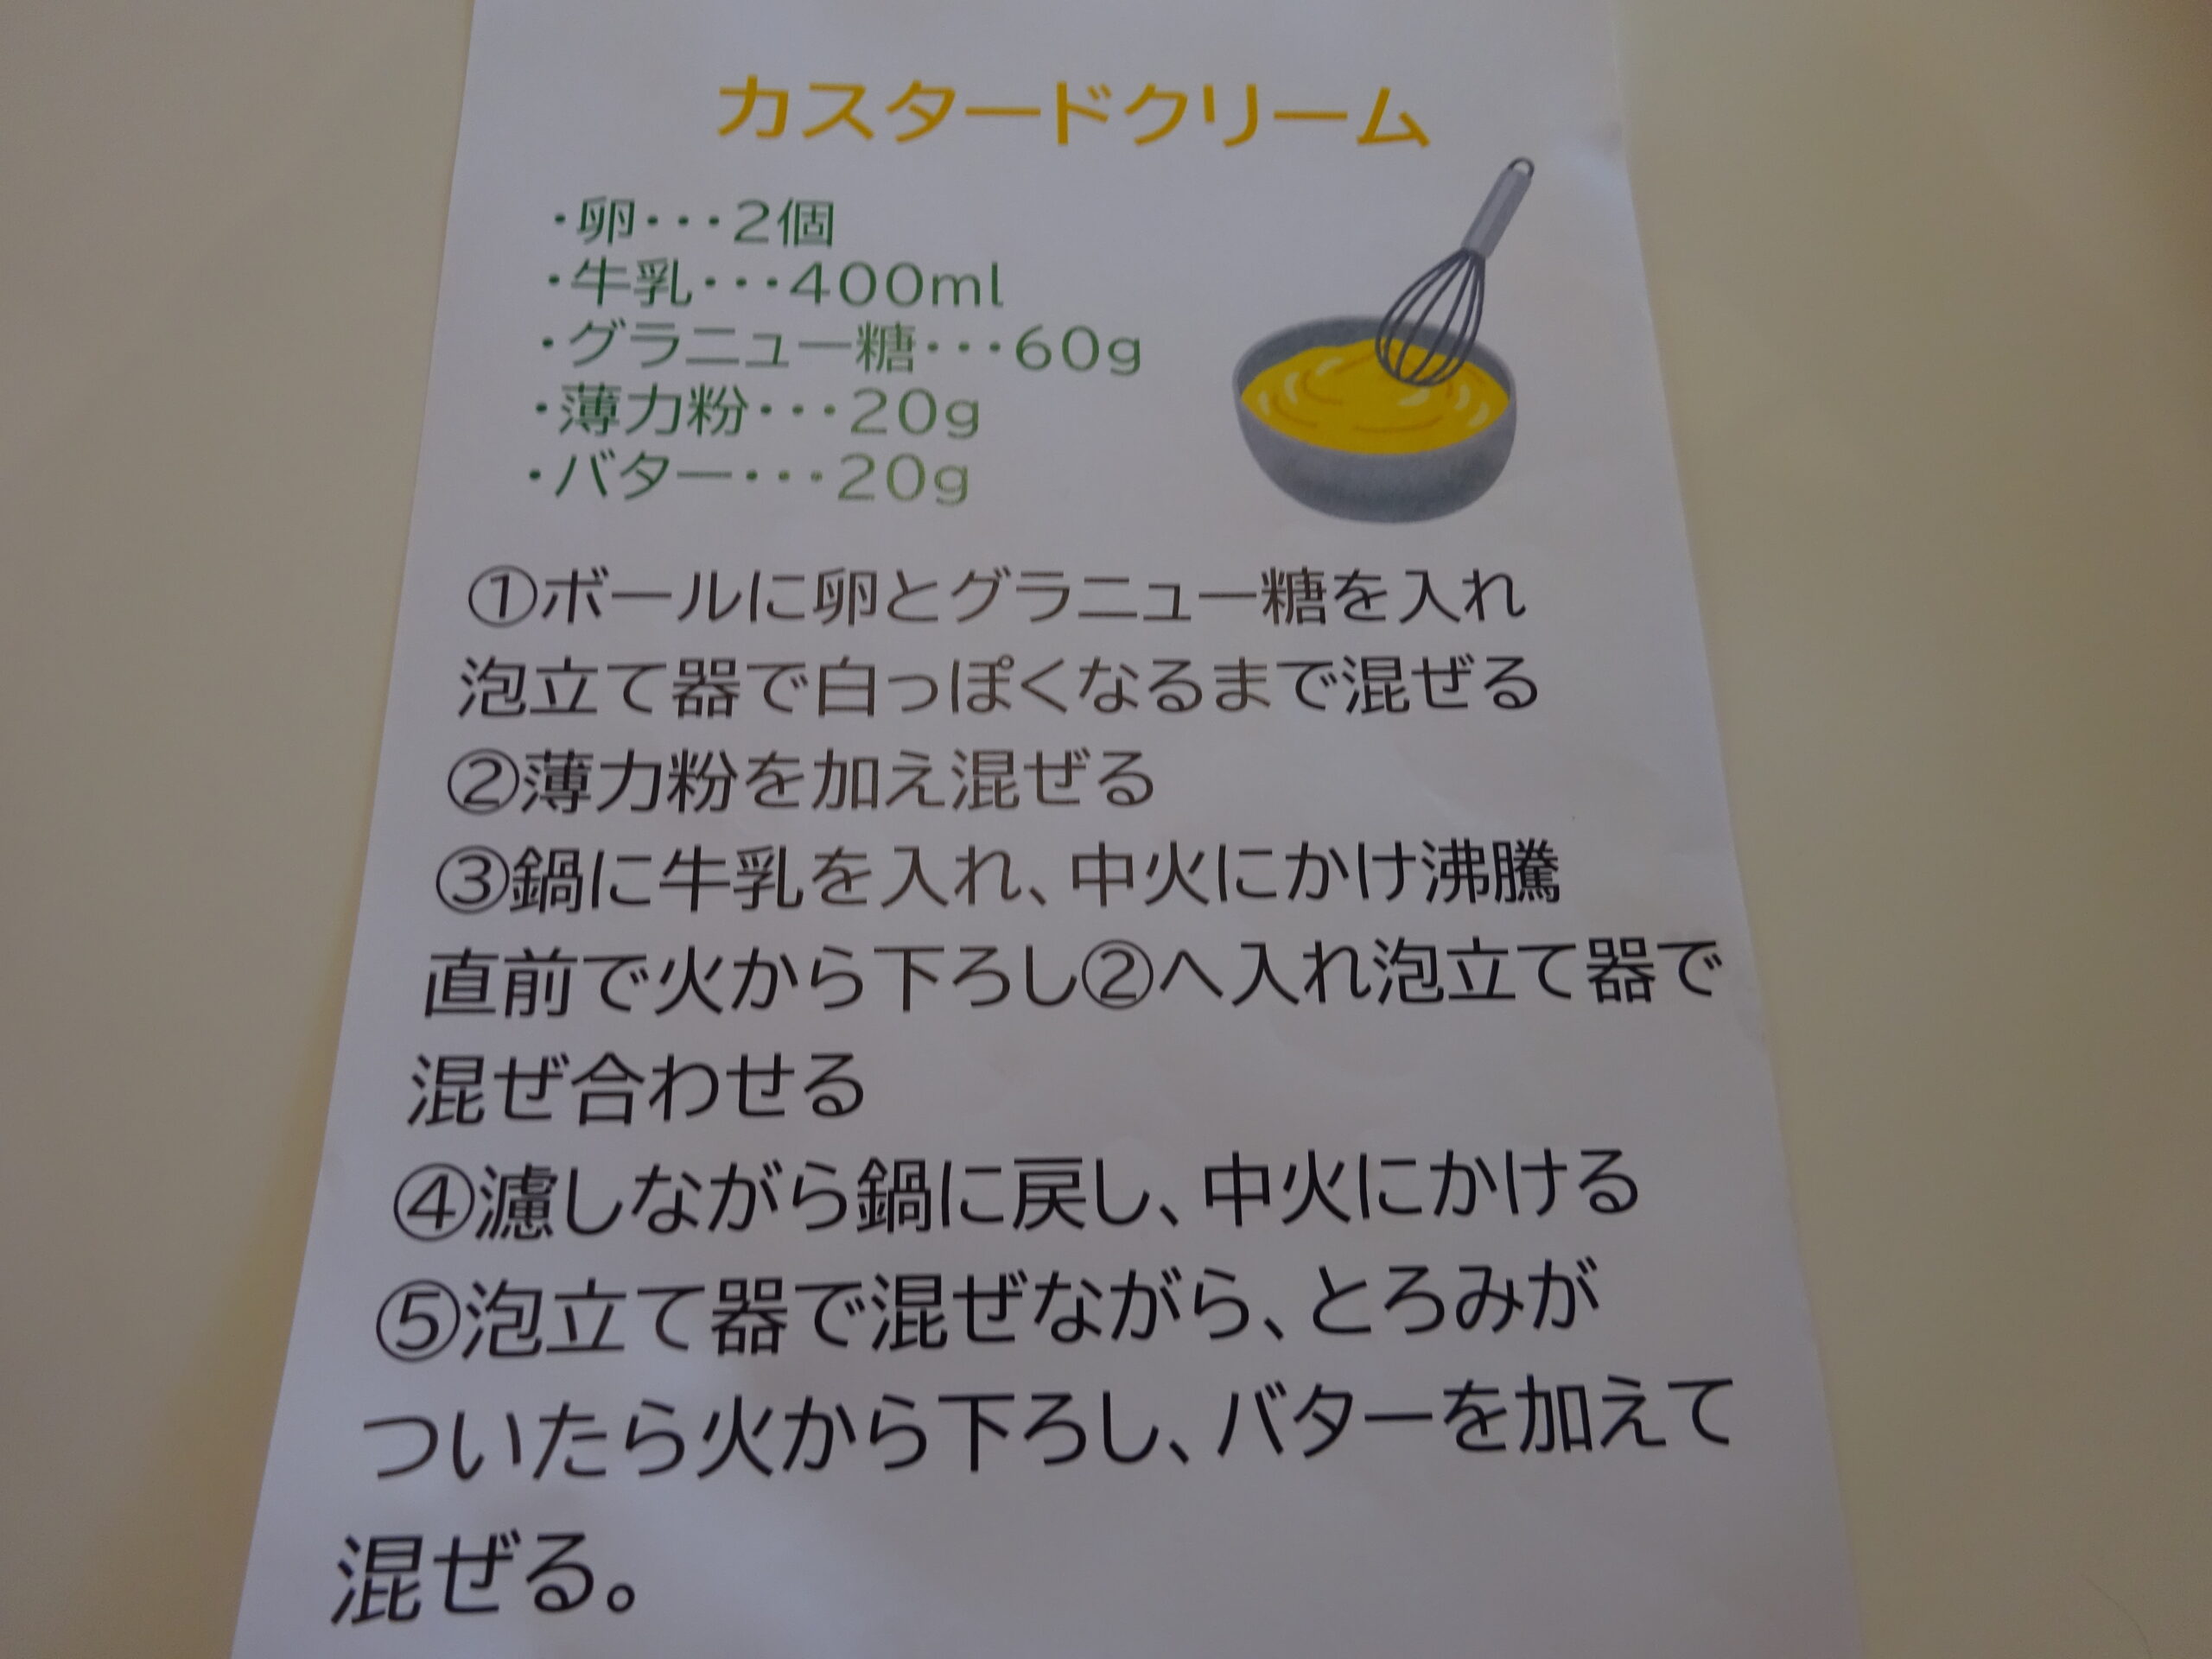 カスタードクリーム
・卵・・・2個
・牛乳・・・400ml
・グラニュー糖・・・60g
・薄力粉・・・20g
・バター・・・20g
①ボールに卵とグラニュー糖を入れ
泡立て器で白っぽくなるまで混ぜる
②薄力粉を加え混ぜる
③鍋に牛乳を入れ、中火にかけ沸騰
直前で火から下ろし②へ入れ泡立て器で
混ぜ合わせる
④濾しながら鍋に戻し、中火にかける
⑤泡立て器で混ぜながら、とろみが
ついたら火から下ろし、バターを加えて
混ぜる。